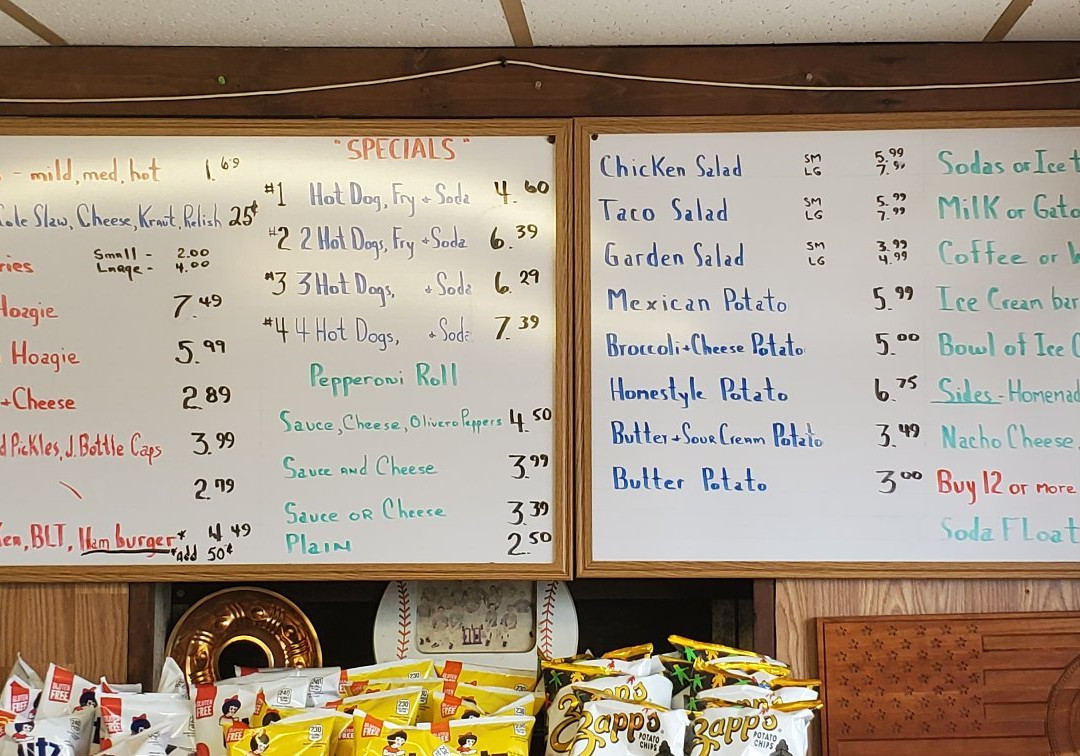 - mild, med, hot 1.69
Cole Slaw, Cheese, Kraut, Relish 25¢
ries Small - 2.00
Lnage - 4.00
Hoagie 7.49
Hoagie 5.99
+Cheese 2.89
d Pickles, J. Bottle Caps 3.99
2.79
ken, BLT, Hamburger* 4.49
*add 50¢
"SPECIALS"
#1 Hot Dog, Fry + Soda 4.60
#2 2 Hot Dogs, Fry + Soda 6.39
#3 3 Hot Dogs, + Soda 6.29
#4 4 Hot Dogs, + Soda 7.39
Pepperoni Roll
Sauce, Cheese, Olivero Peppers 4.50
Sauce and Cheese 3.99
Sauce or Cheese 3.39
Plain 2.50
Chicken Salad SM 5.99
LG 7.50
Taco Salad SM 5.99
LG 7.99
Garden Salad SM 3.99
LG 4.99
Mexican Potato 5.99
Broccoli+Cheese Potato 5.00
Homestyle Potato 6.75
Butter+Sour Cream Potato 3.49
Butter Potato 3.00
Sodas or Ice t
Milk or Gato
Coffee or
Ice Cream bar
Bowl of Ice C
Sides - Homemad
Nacho Cheese,
Buy 12 or more
Soda Float
GLUTEN FREE
GLUTEN FREE
Zapp's
POTATO CHIPS
Zapp's
POTATO CHIPS